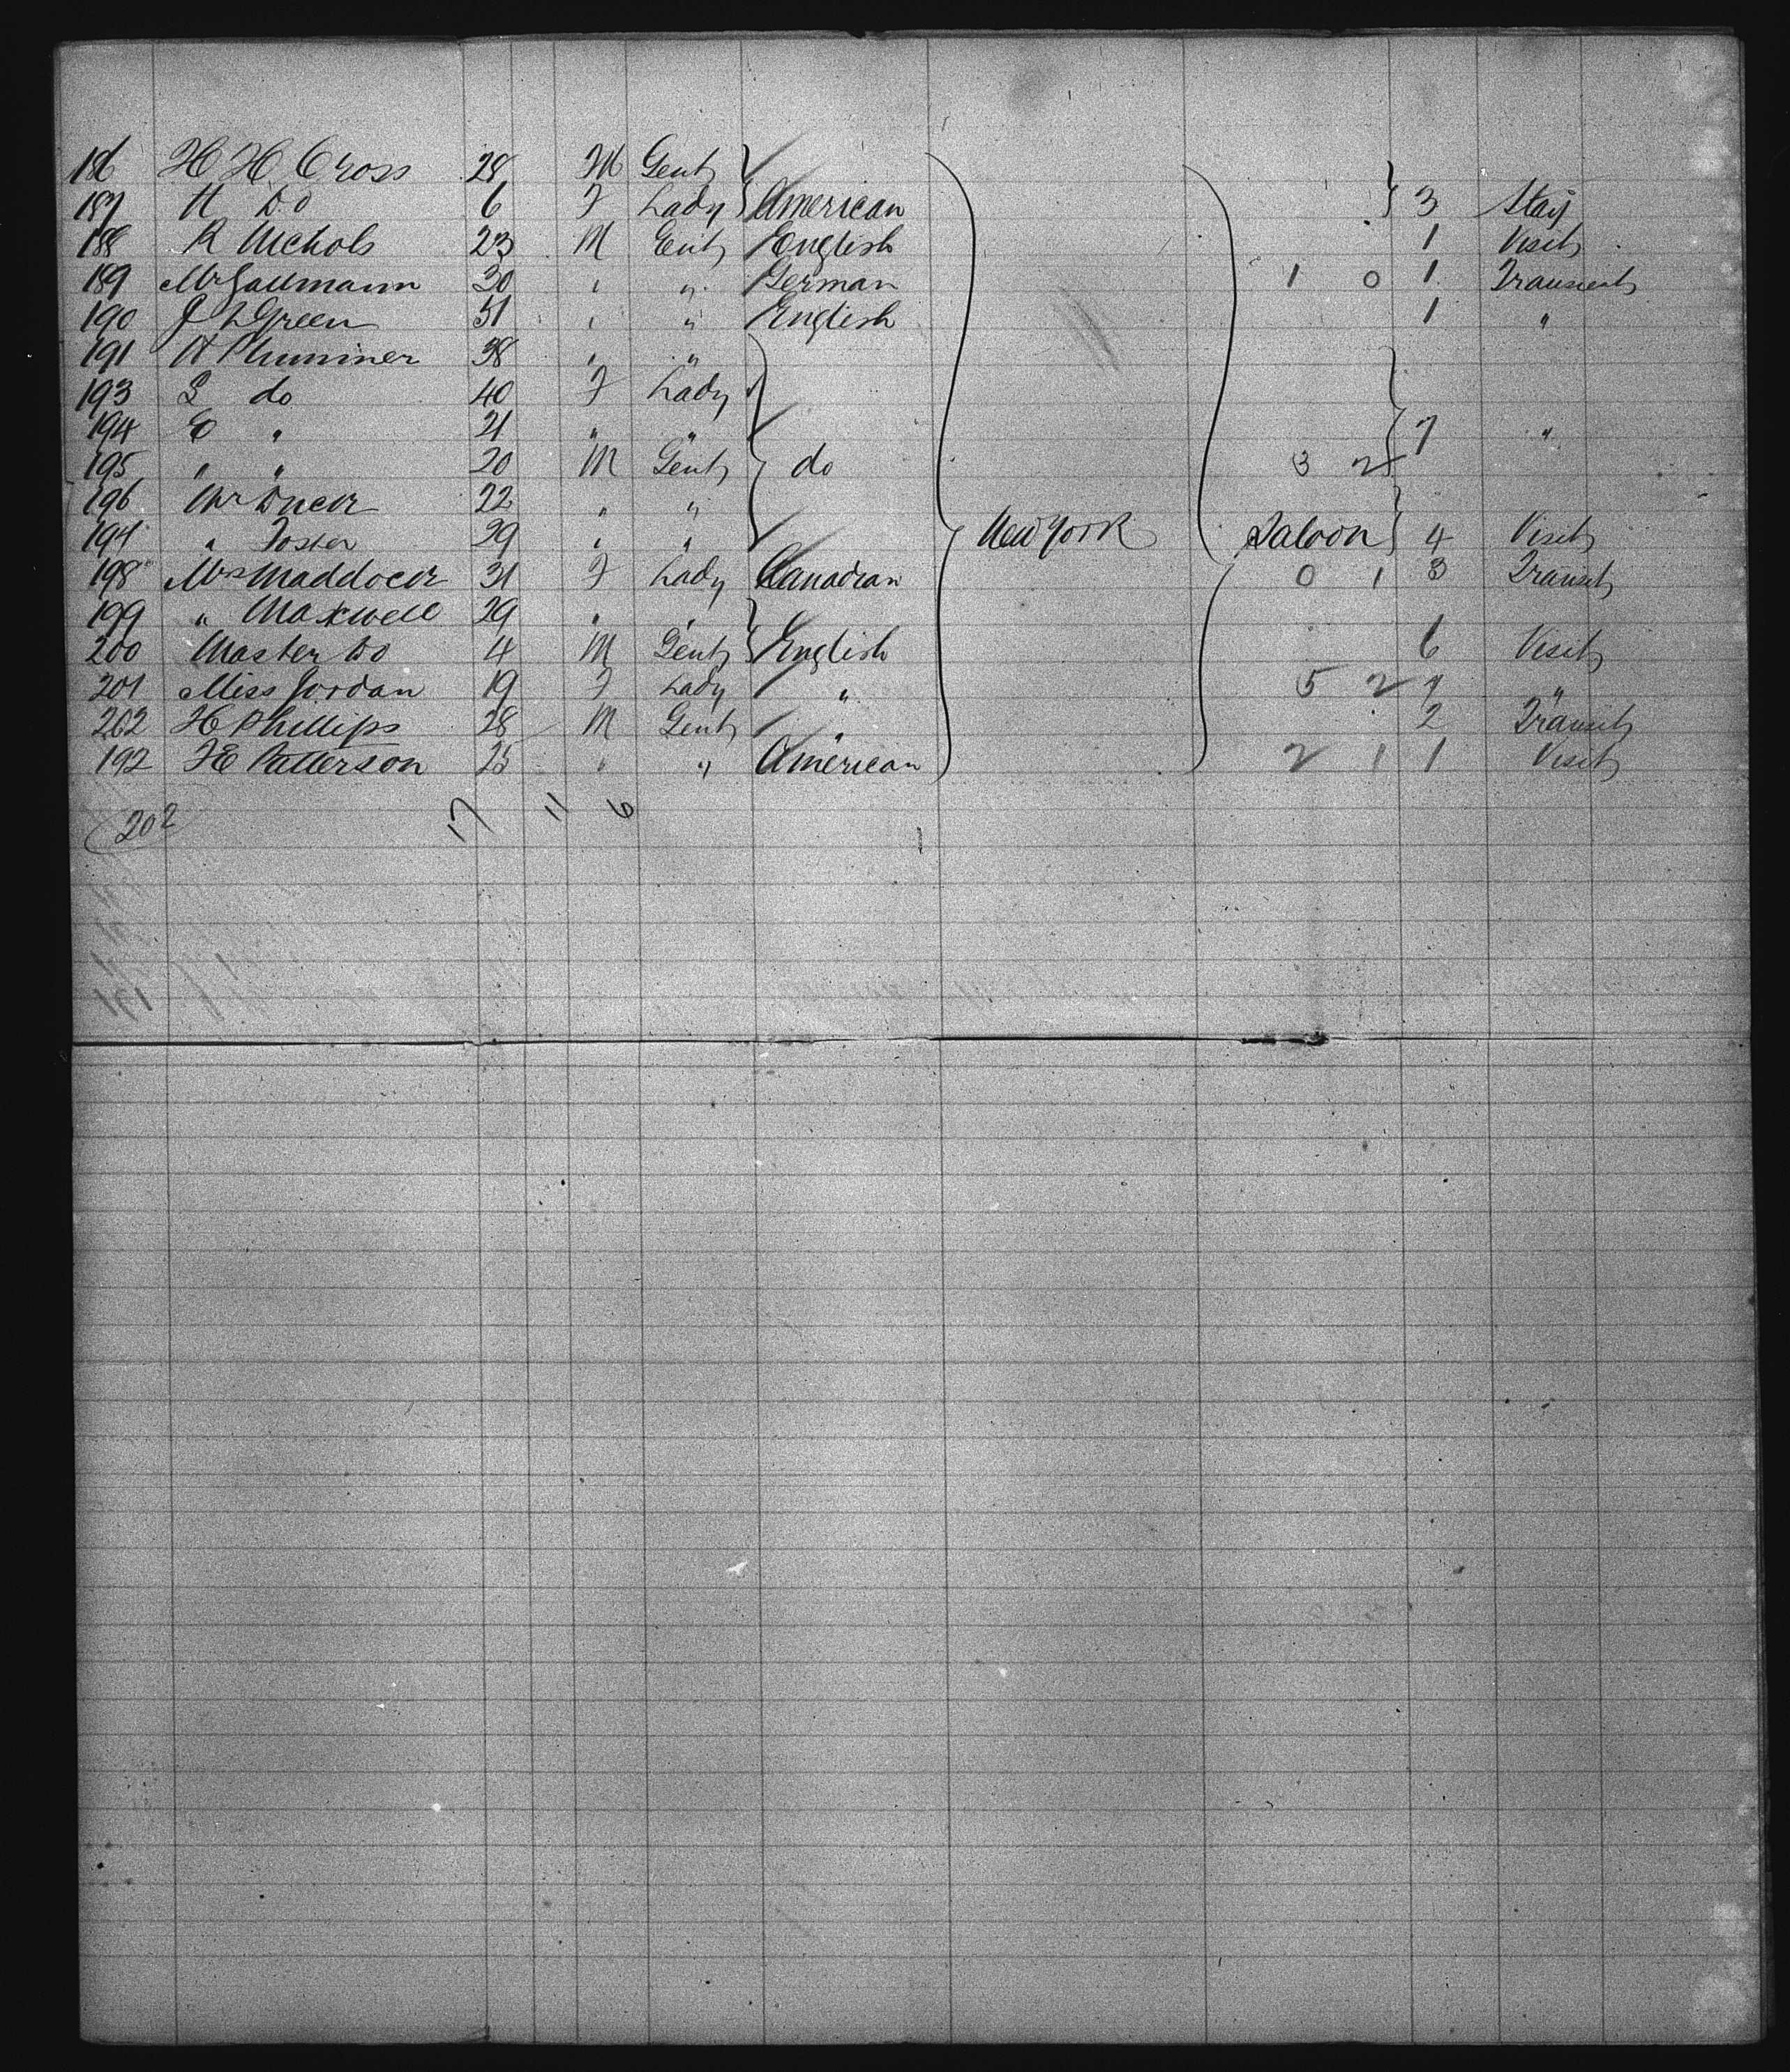 186 H H Cross 28 M Gent
187 H Do 6 F Lady American 3 Stay
188 R Nichols 23 M Gent English 1 Visit
189 Mr Gallmann 30 " " German 1 0 1 Transient
190 J L Green 51 " " English 1 "
191 H Plummer 38 " "
193 S do 40 F Lady
194 E " 21 " " 7 "
195 " " 20 M Gent do 3 2
196 Mr 22 " "
197 " Foster 29 " " New York Saloon 4 Visit
198 Mrs Maddock 31 F Lady Canadian 0 1 3 Transit
199 " Maxwell 29 " "
200 Master Do 4 M Gent English 6 Visit
201 Miss Jordan 19 F Lady " 5 2 7 "
202 H Phillips 28 M Gent " 2 Transit
192 F E Patterson 25 " " American 2 1 1 Visit
202 17 11 6